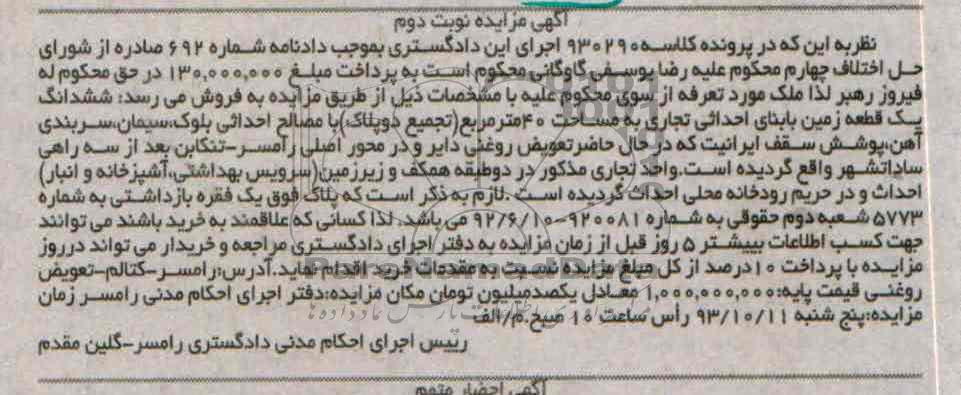 آگهی مزایده نوبت دوم
نظر به این که در پرونده کلاسه ۹۳۰۲۹۰ اجرای این دادگستری بموجب دادنامه شماره ۶۹۲ صادره از شورای
حل اختلاف چهارم محکوم علیه رضا یوسفی گاوگانی محکوم است به پرداخت مبلغ ۱۳۰,۰۰۰,۰۰۰ در حق محکوم له
فیروز رهبر لذا ملک مورد تعرفه از سوی محکوم علیه با مشخصات ذیل از طریق مزایده به فروش می رسد: ششدانگ
یک قطعه زمین بابنای احداثی تجاری به مساحت ۴۰مترمربع(تجمیع دوپلاک)با مصالح احداثی بلوک،سیمان،سربندی
آهن،پوشش سقف ایرانیت که درحال حاضرتعویض روغنی دایر و در محور اصلی رامسر-تنکابن بعد از سه راهی
ساداتشهر واقع گردیده است.واحد تجاری مذکور در دوطبقه همکف و زیرزمین(سرویس بهداشتی،آشپزخانه و انبار)
احداث و در حریم رودخانه محلی احداث گردیده است .لازم به ذکر است که پلاک فوق یک فقره بازداشتی به شماره
۵۷۷۳ شعبه دوم حقوقی به شماره ۹۲۰۰۸۱-۹۲/۶/۱۰ می باشد. لذا کسانی که علاقمند به خرید باشند می توانند
جهت کسب اطلاعات بییشتر ۵ روز قبل از زمان مزایده به دفتر اجرای دادگستری مراجعه و خریدار می تواند درروز
مزایده با پرداخت ۱۰درصد از کل مبلغ مزایده نسبت به مقدمات خرید اقدام نماید.آدرس:رامسر-کتالم-تعویض
روغنی قیمت پایه:۱,۰۰۰,۰۰۰,۰۰۰ معادل یکصدمیلیون تومان مکان مزایده:دفتر اجرای احکام مدنی رامسر زمان
مزایده:پنج شنبه ۹۳/۱۰/۱۱ رأس ساعت ۱۰ صبح.م/الف
رییس اجرای احکام مدنی دادگستری رامسر-گلین مقدم
آگهی احضار متهم